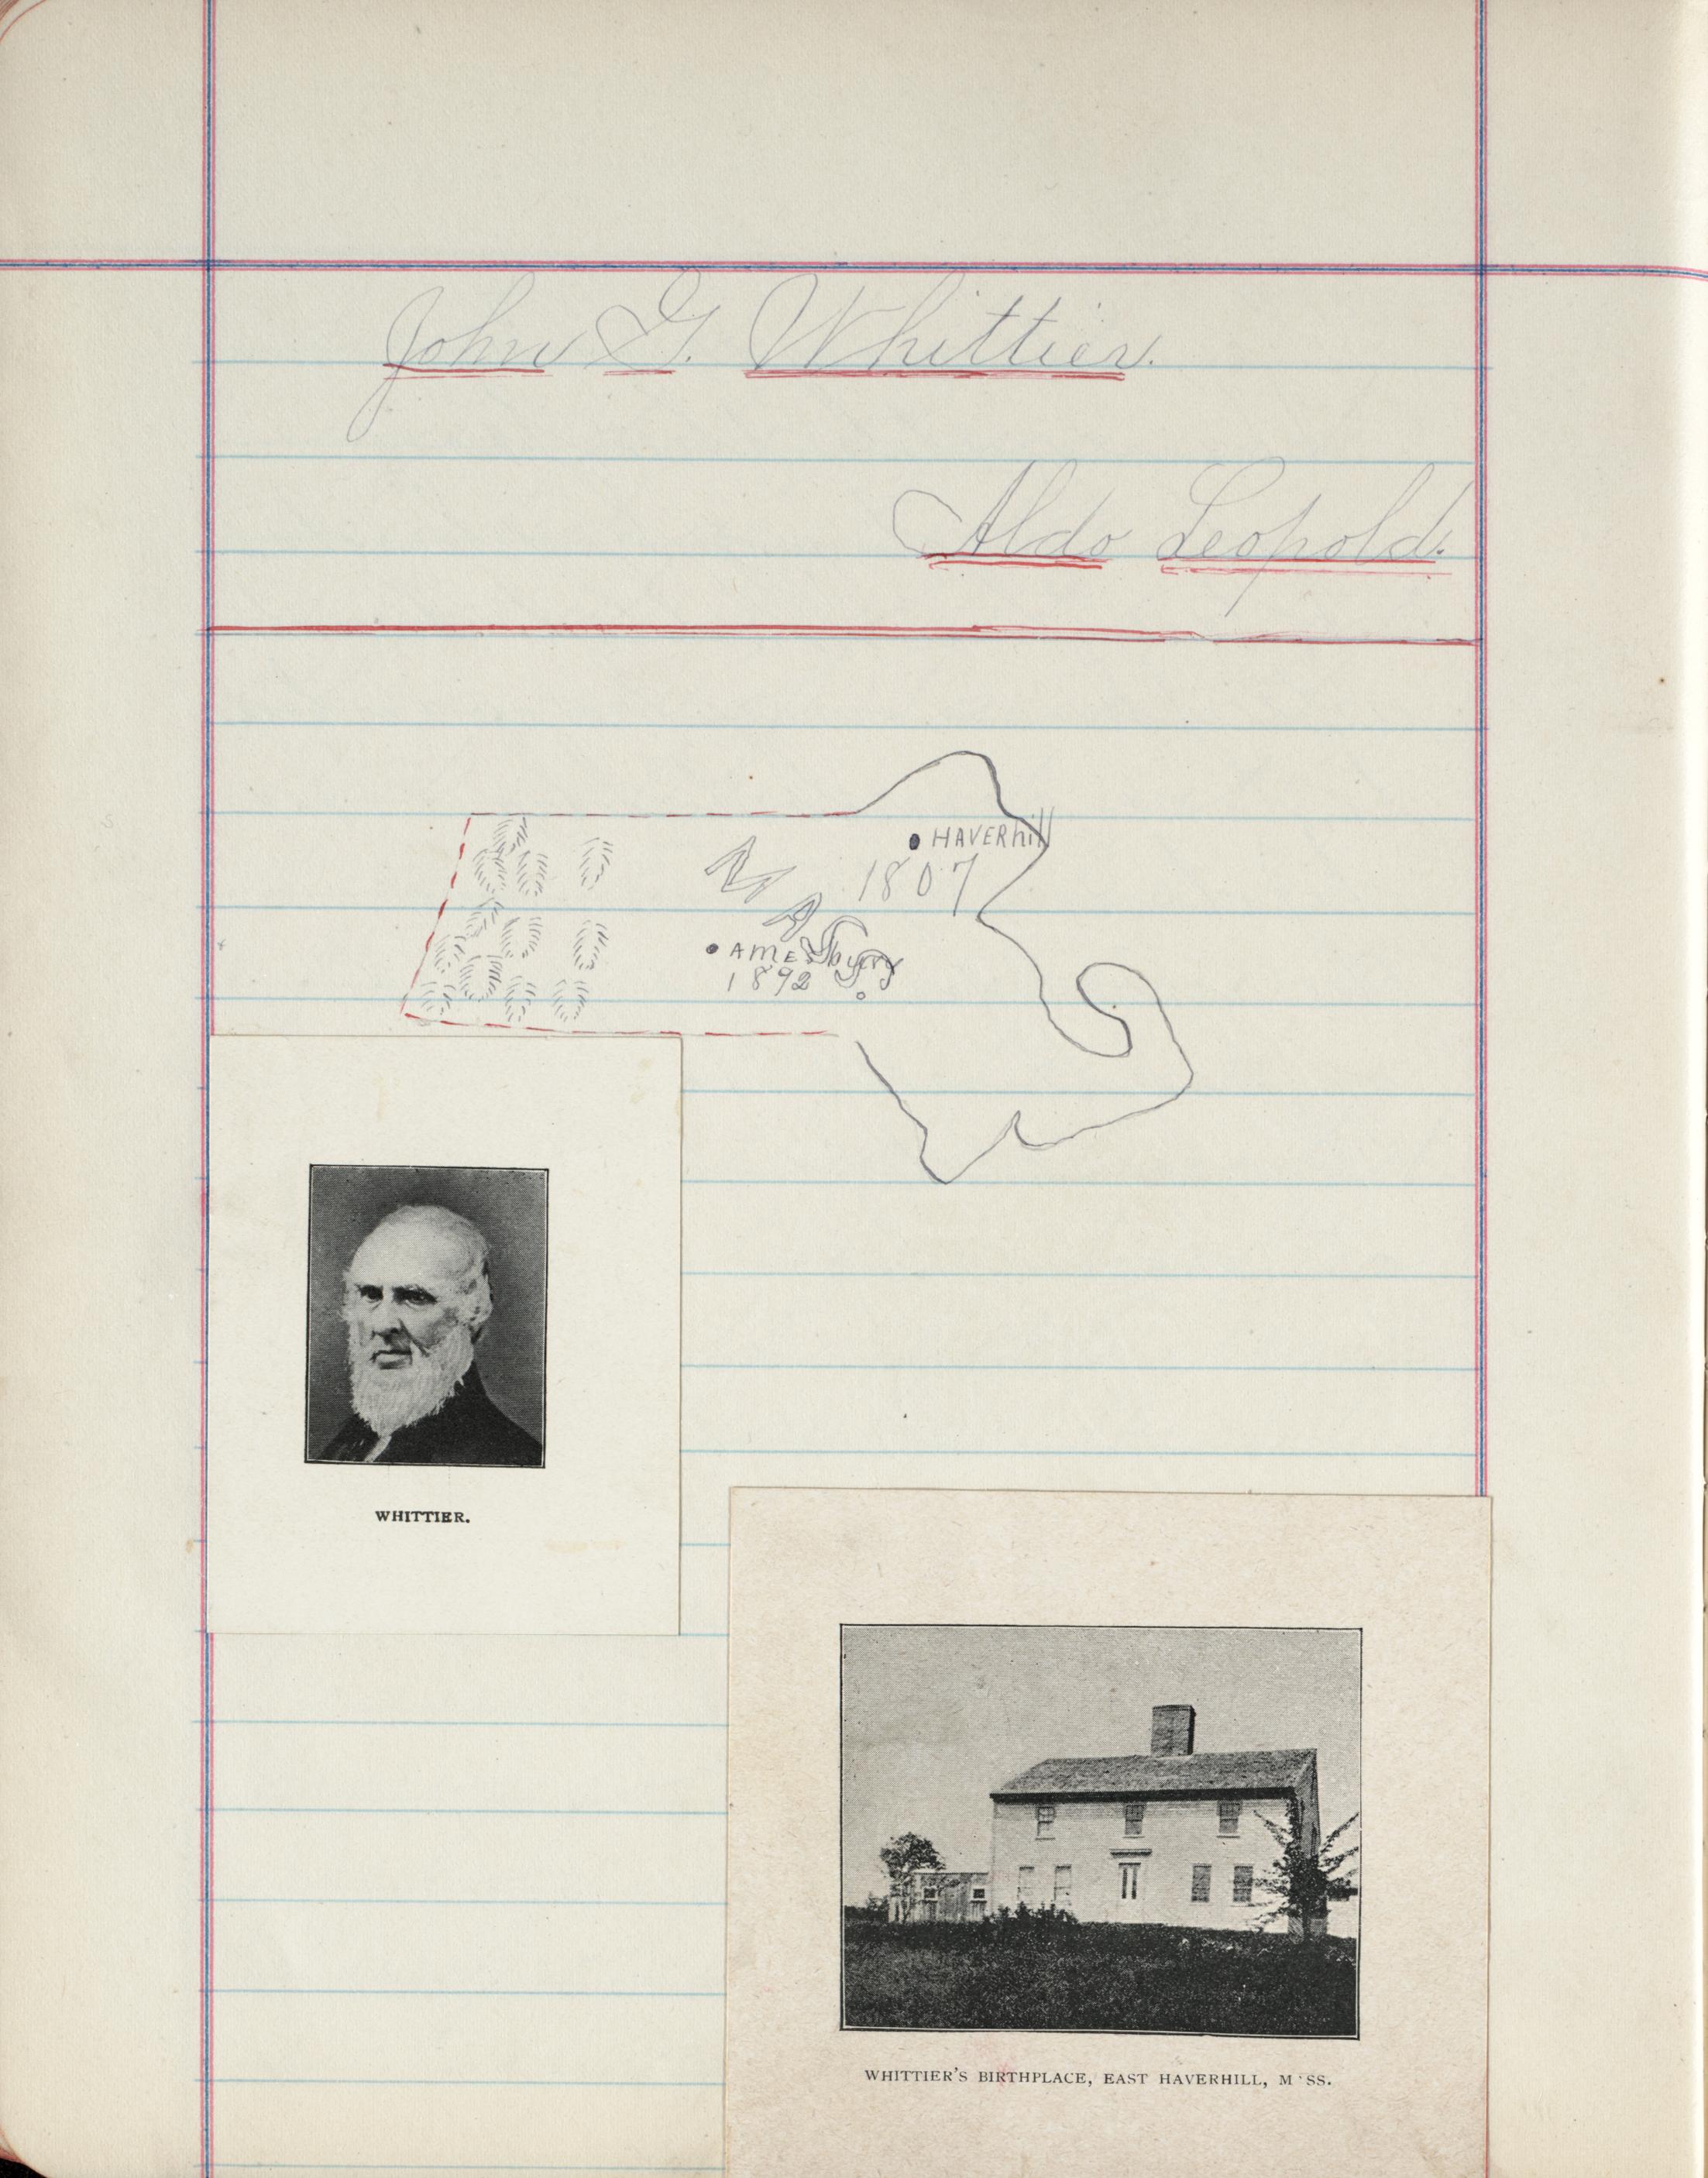 John G. Whittier.
Aldo Leopold.
HAVERhill
1807
MASS.
AMESbury
1892
WHITTIER.
WHITTIER'S BIRTHPLACE, EAST HAVERHILL, M SS.